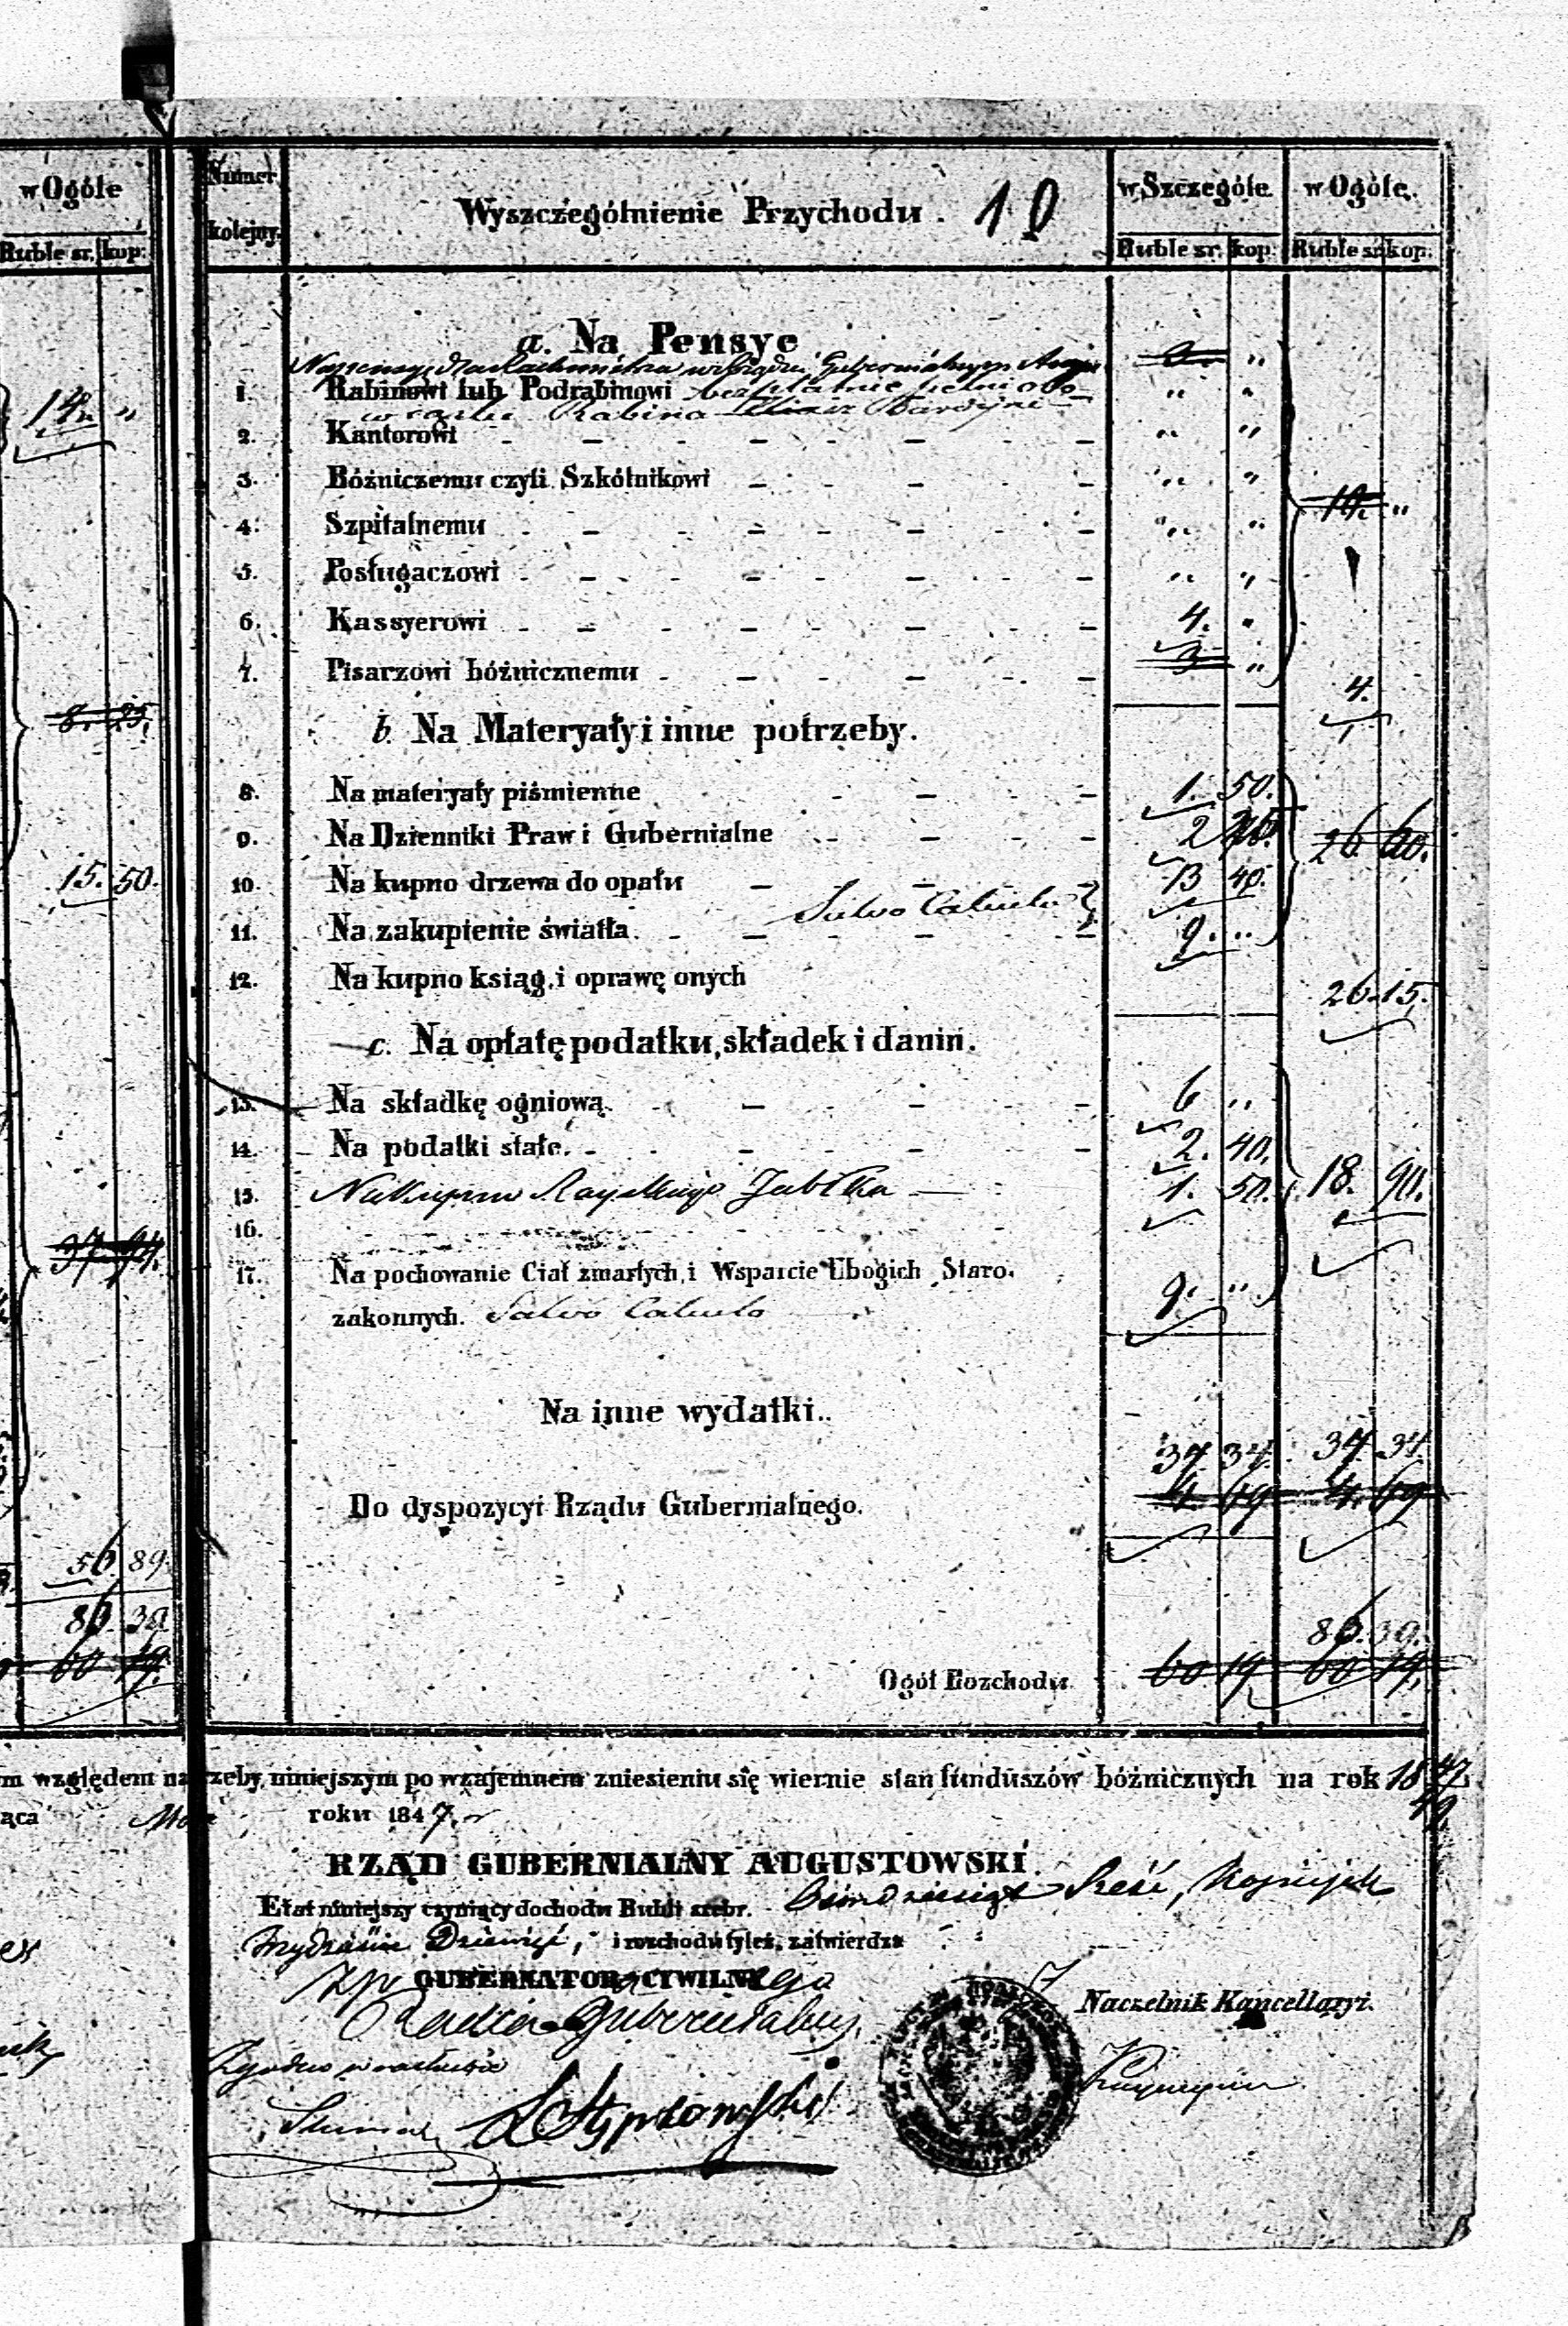 w Ogóle
Ruble sr. kop:
14. "
8. 25.
15. 50.
37 94.
56. 89.
86. 39
60 19.
Numer kolejny.
Wyszczególnienie Przychodu. 10
w Szczególe. w Ogóle.
Ruble sr. kop. Ruble sr. kop.
a. Na Pensye
Na pensyę dla Rachmistrza w Rządzie Gubernialnym "
1. Rabinowi lub Podrabinowi bezpłatnie pełni obo- " "
wiązki Rabina
2. Kantorowi " "
3. Bóźniczemu czyli Szkólnikowi " "
4. Szpitalnemu " " 10. "
5. Posługaczowi " "
6. Kassyerowi 4. "
7. Pisarzowi bóżnicznemu 3 " 4.
b. Na Materyały i inne potrzeby.
8. Na materyały piśmienne 1. 50.
9. Na Dzienniki Praw i Gubernialne 2 26 60.
10. Na kupno drzewa do opału 13 40.
Salvo Calculo
11. Na zakupienie światła 9. "
12. Na kupno ksiąg i oprawę onych 26. 15.
c. Na opłatę podatku, składek i danin.
13. Na składkę ogniową 6 "
14. Na podatki stałe. 2. 40.
15. Na kupno Rayskiego Jabłka 1. 50. 18. 90.
16.
17. Na pochowanie Ciał zmarłych, i Wsparcie Ubogich Staro-
zakonnych. Salvo Calculo 9. "
Na inne wydatki..
37 34. 37 34.
Do dyspozycyi Rządu Gubernialnego. 4. 69 4. 69
86. 39.
Ogół Rozchodu 60 19 60 19.
m względem na rzeby niniejszym po wzajemnem zniesieniu się wiernie stan funduszów bóżnicznych na rok 1847
49.
ąca roku 1847. r
RZĄD GUBERNIALNY AUGUSTOWSKI.
Etat niniejszy czyniący dochodu Rubli srebr. Ośmdziesiąt Sześć, Kopiejek
trzydzieści Dziewięć, i rozchodu tyleż, zatwierdza
GUBERNATOR CYWILNY
Radca Gubernialny
Naczelnik Kancellaryi.